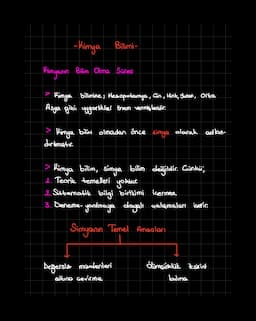 -Kimya Bilimi-
Kimyanın Bilim Olma Süreci
> Kimya bilimine; Mezopotamya, Çin, Hint, Sümer, Orta
Asya gibi uygarlıklar önem vermişlerdir.
> Kimya bilim olmadan önce simya olarak adlan-
dırılmıştır.
> Simya bilim, simya bilim değildir. Çünkü;
1. Teorik temelleri yoktur.
2. Sistematik bilgi birikimi içermez.
3. Deneme-yanılmaya dayalı çalışmaları içerir.
Simyanın Temel Amaçları
Değersiz madenleri
altına çevirme
Ölümsüzlük iksirini
bulma